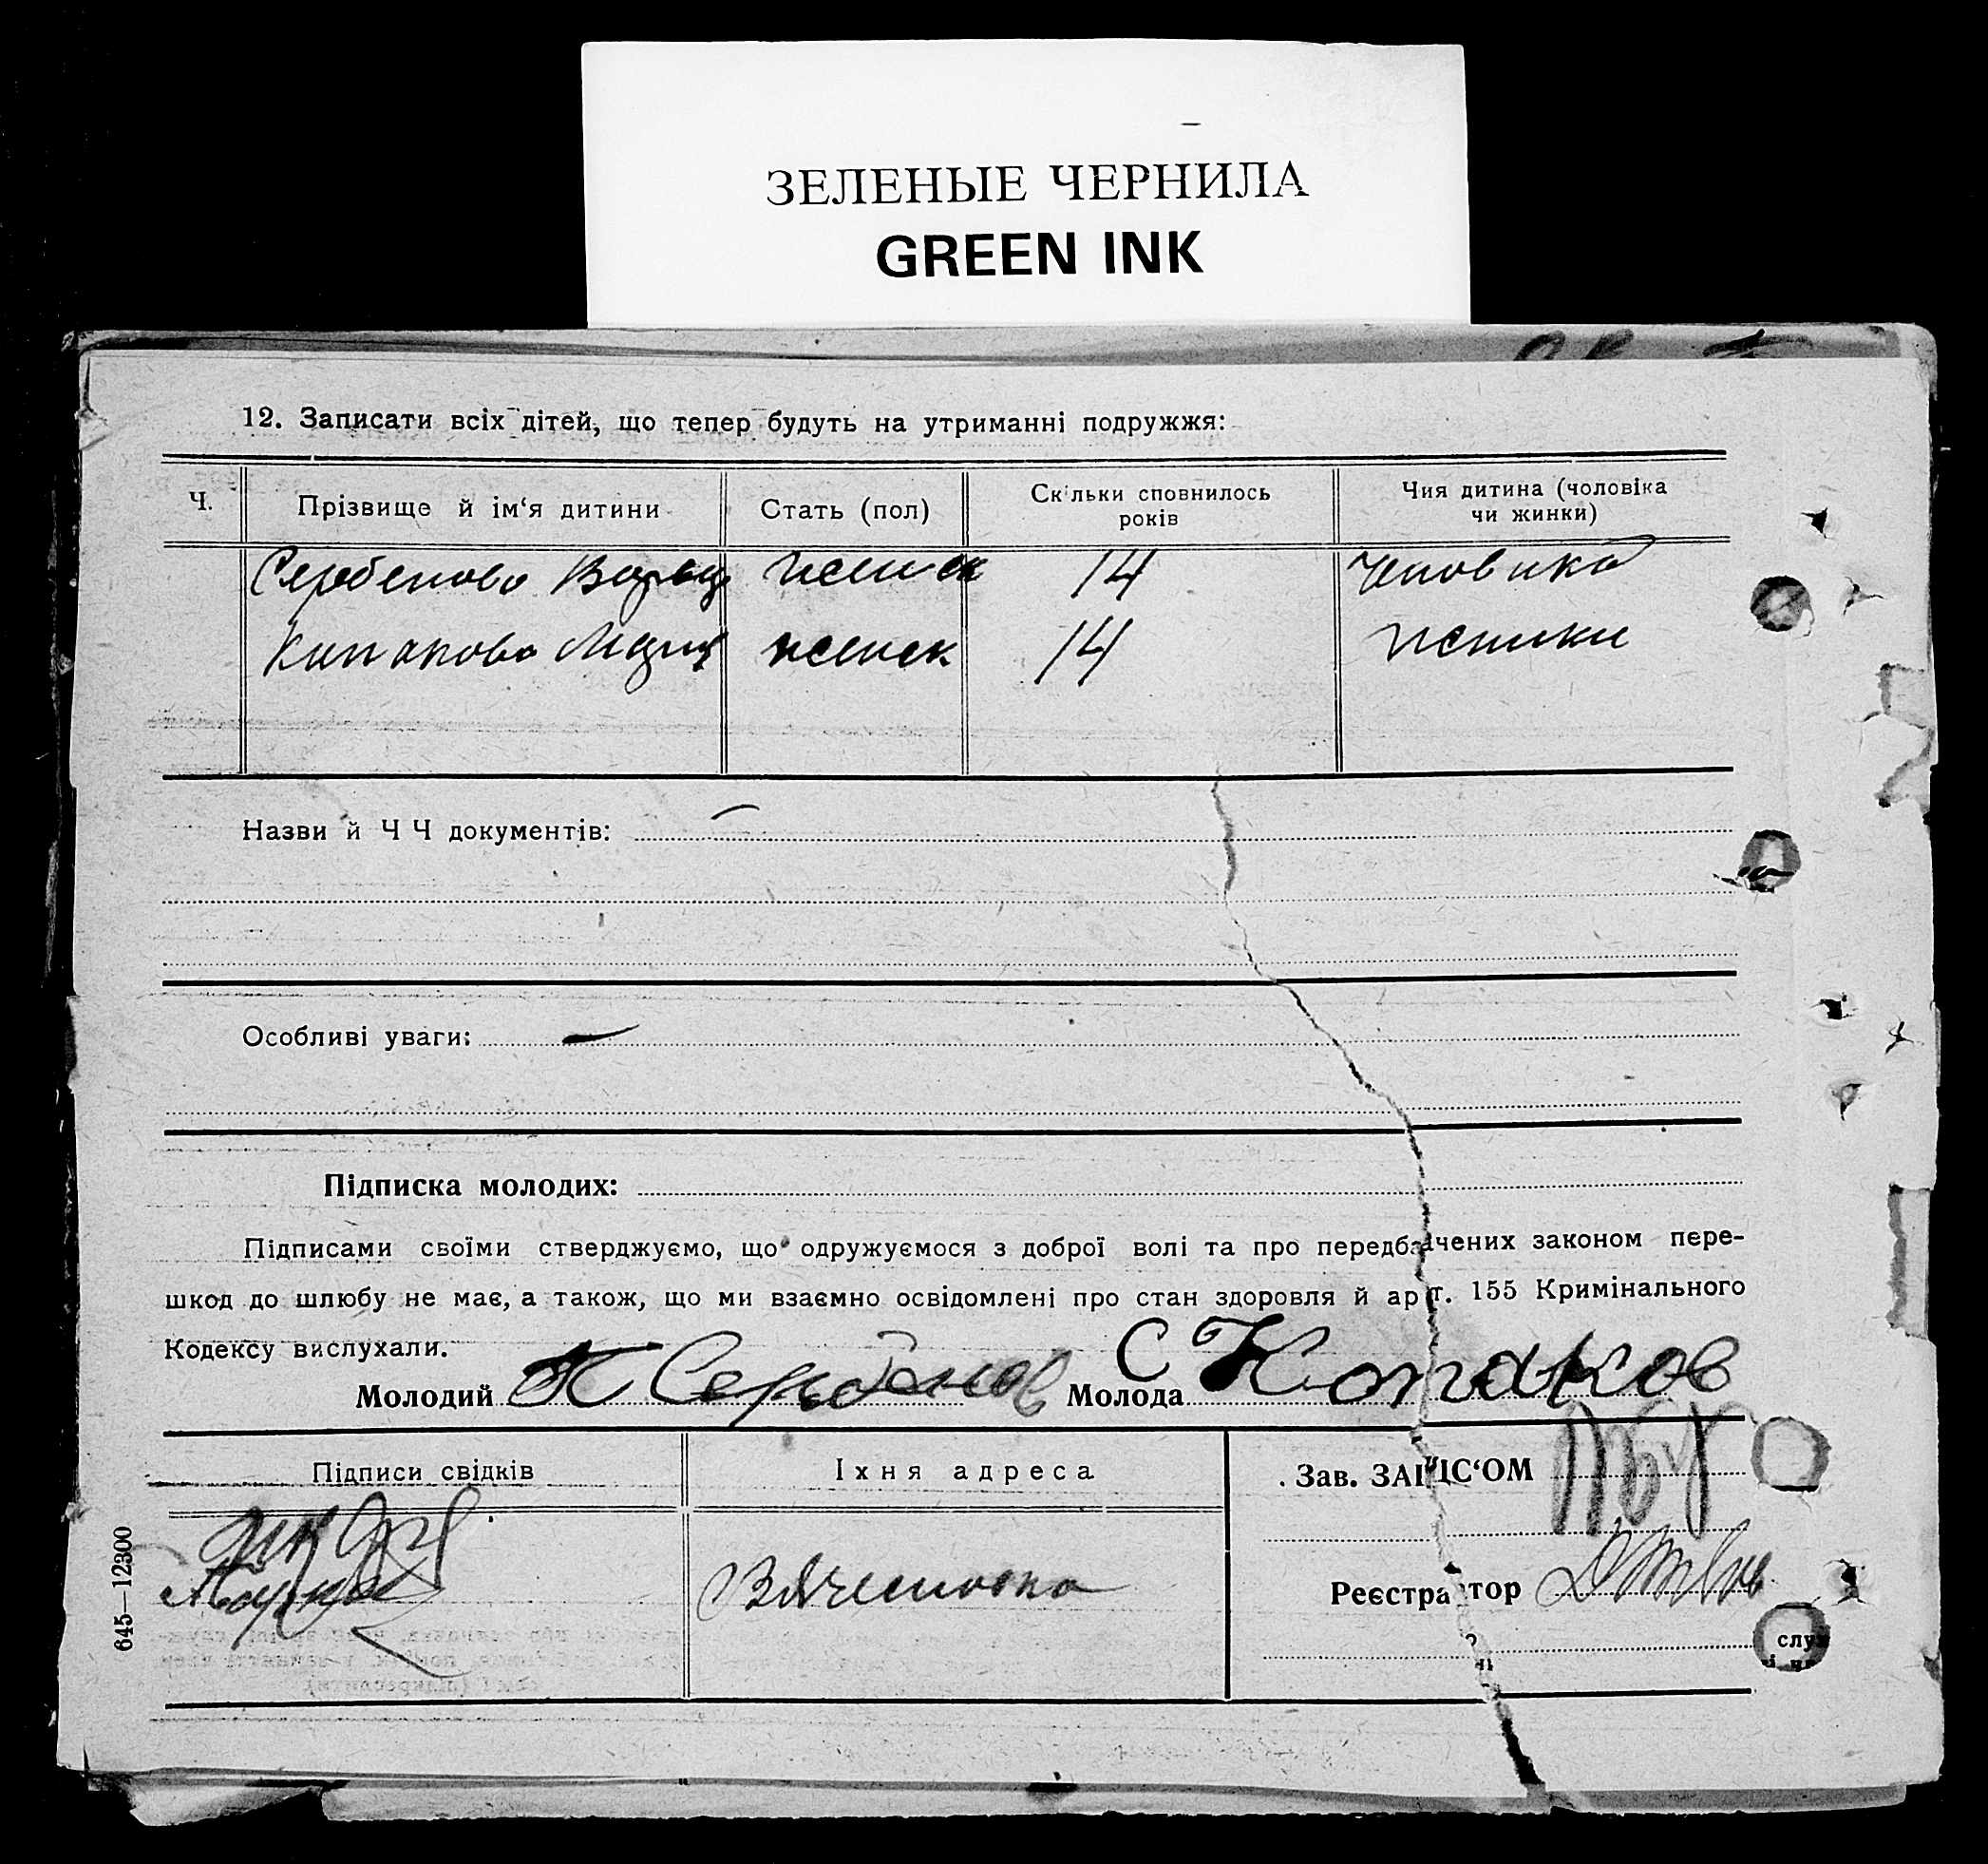 ЗЕЛЕНЫЕ ЧЕРНИЛА
GREEN INK
12. Записати всіх дітей, що тепер будуть на утриманні подружжя:
Ч. Прізвище й ім‘я дитини Стать (пол) Скільки сповнилось років Чия дитина (чоловіка чи жинки)
Сербенова женск 14 Чоловика
женск 14 женики
Назви й Ч Ч документів:
Особливі уваги:
Підписка молодих:
Підписами своїми стверджуємо, що одружуємося з доброї волі та про передбачених законом пере-
шкод до шлюбу не має, а також, що ми взаємно освідомлені про стан здоровля й арт. 155 Кримінального
Кодексу вислухали.
Молодий Сербенов Молода С Копаков
Підписи свідків Їхня адреса Зав. ЗАГС‘ОМ
Реєстратор
645—12300